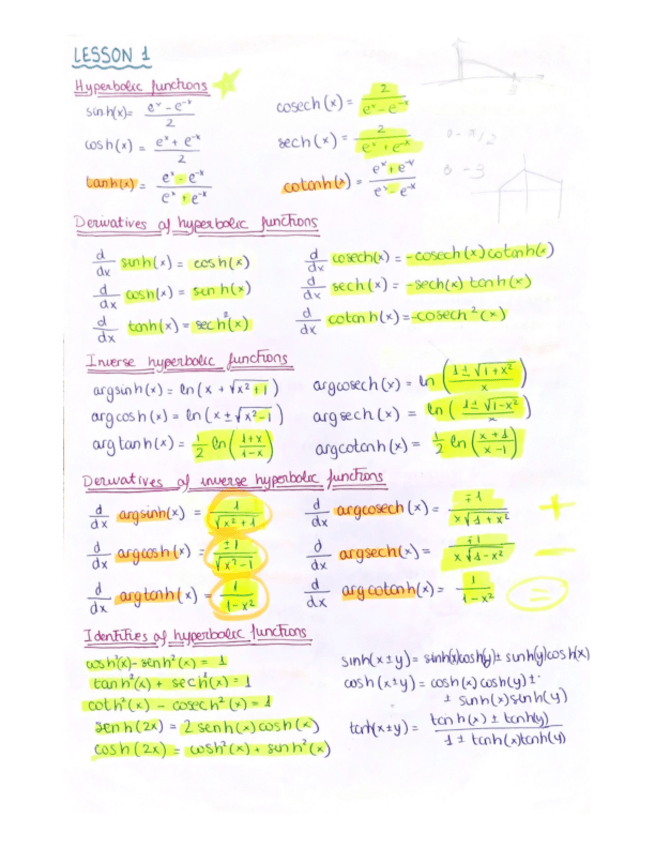 LESSON 1
Hyperbolic functions
sinh(x) = (e^x - e^-x)/2
cosech(x) = 2/(e^x - e^-x)
cosh(x) = (e^x + e^-x)/2
sech(x) = 2/(e^x + e^-x)
0 - π/2
tanh(x) = (e^x - e^-x)/(e^x + e^-x)
cotanh(x) = (e^x + e^-x)/(e^x - e^-x)
0 - 3
Derivatives of hyperbolic functions
d/dx sinh(x) = cosh(x)
d/dx cosech(x) = -cosech(x) cotanh(x)
d/dx cosh(x) = senh(x)
d/dx sech(x) = -sech(x) tanh(x)
d/dx tanh(x) = sech²(x)
d/dx cotanh(x) = -cosech²(x)
Inverse hyperbolic functions
argsinh(x) = ln(x + √(x²+1))
argcosech(x) = ln((1±√(1+x²))/x)
argcosh(x) = ln(x ± √(x²-1))
argsech(x) = ln((1±√(1-x²))/x)
argtanh(x) = 1/2 ln((1+x)/(1-x))
argcotanh(x) = 1/2 ln((x+1)/(x-1))
Derivatives of inverse hyperbolic functions
d/dx argsinh(x) = 1/√(x²+1)
d/dx argcosech(x) = ∓1/(x√(1+x²))
+
d/dx argcosh(x) = ±1/√(x²-1)
d/dx argsech(x) = ∓1/(x√(1-x²))
-
d/dx argtanh(x) = 1/(1-x²)
d/dx argcotanh(x) = 1/(1-x²)
=
Identities of hyperbolic functions
cosh²(x) - senh²(x) = 1
tanh²(x) + sech²(x) = 1
coth²(x) - cosech²(x) = 1
senh(2x) = 2 senh(x) cosh(x)
cosh(2x) = cosh²(x) + sinh²(x)
sinh(x±y) = sinh(x)cosh(y) ± sinh(y)cosh(x)
cosh(x±y) = cosh(x) cosh(y) ±
± sinh(x) sinh(y)
tanh(x±y) = (tanh(x) ± tanh(y))/(1 ± tanh(x)tanh(y))